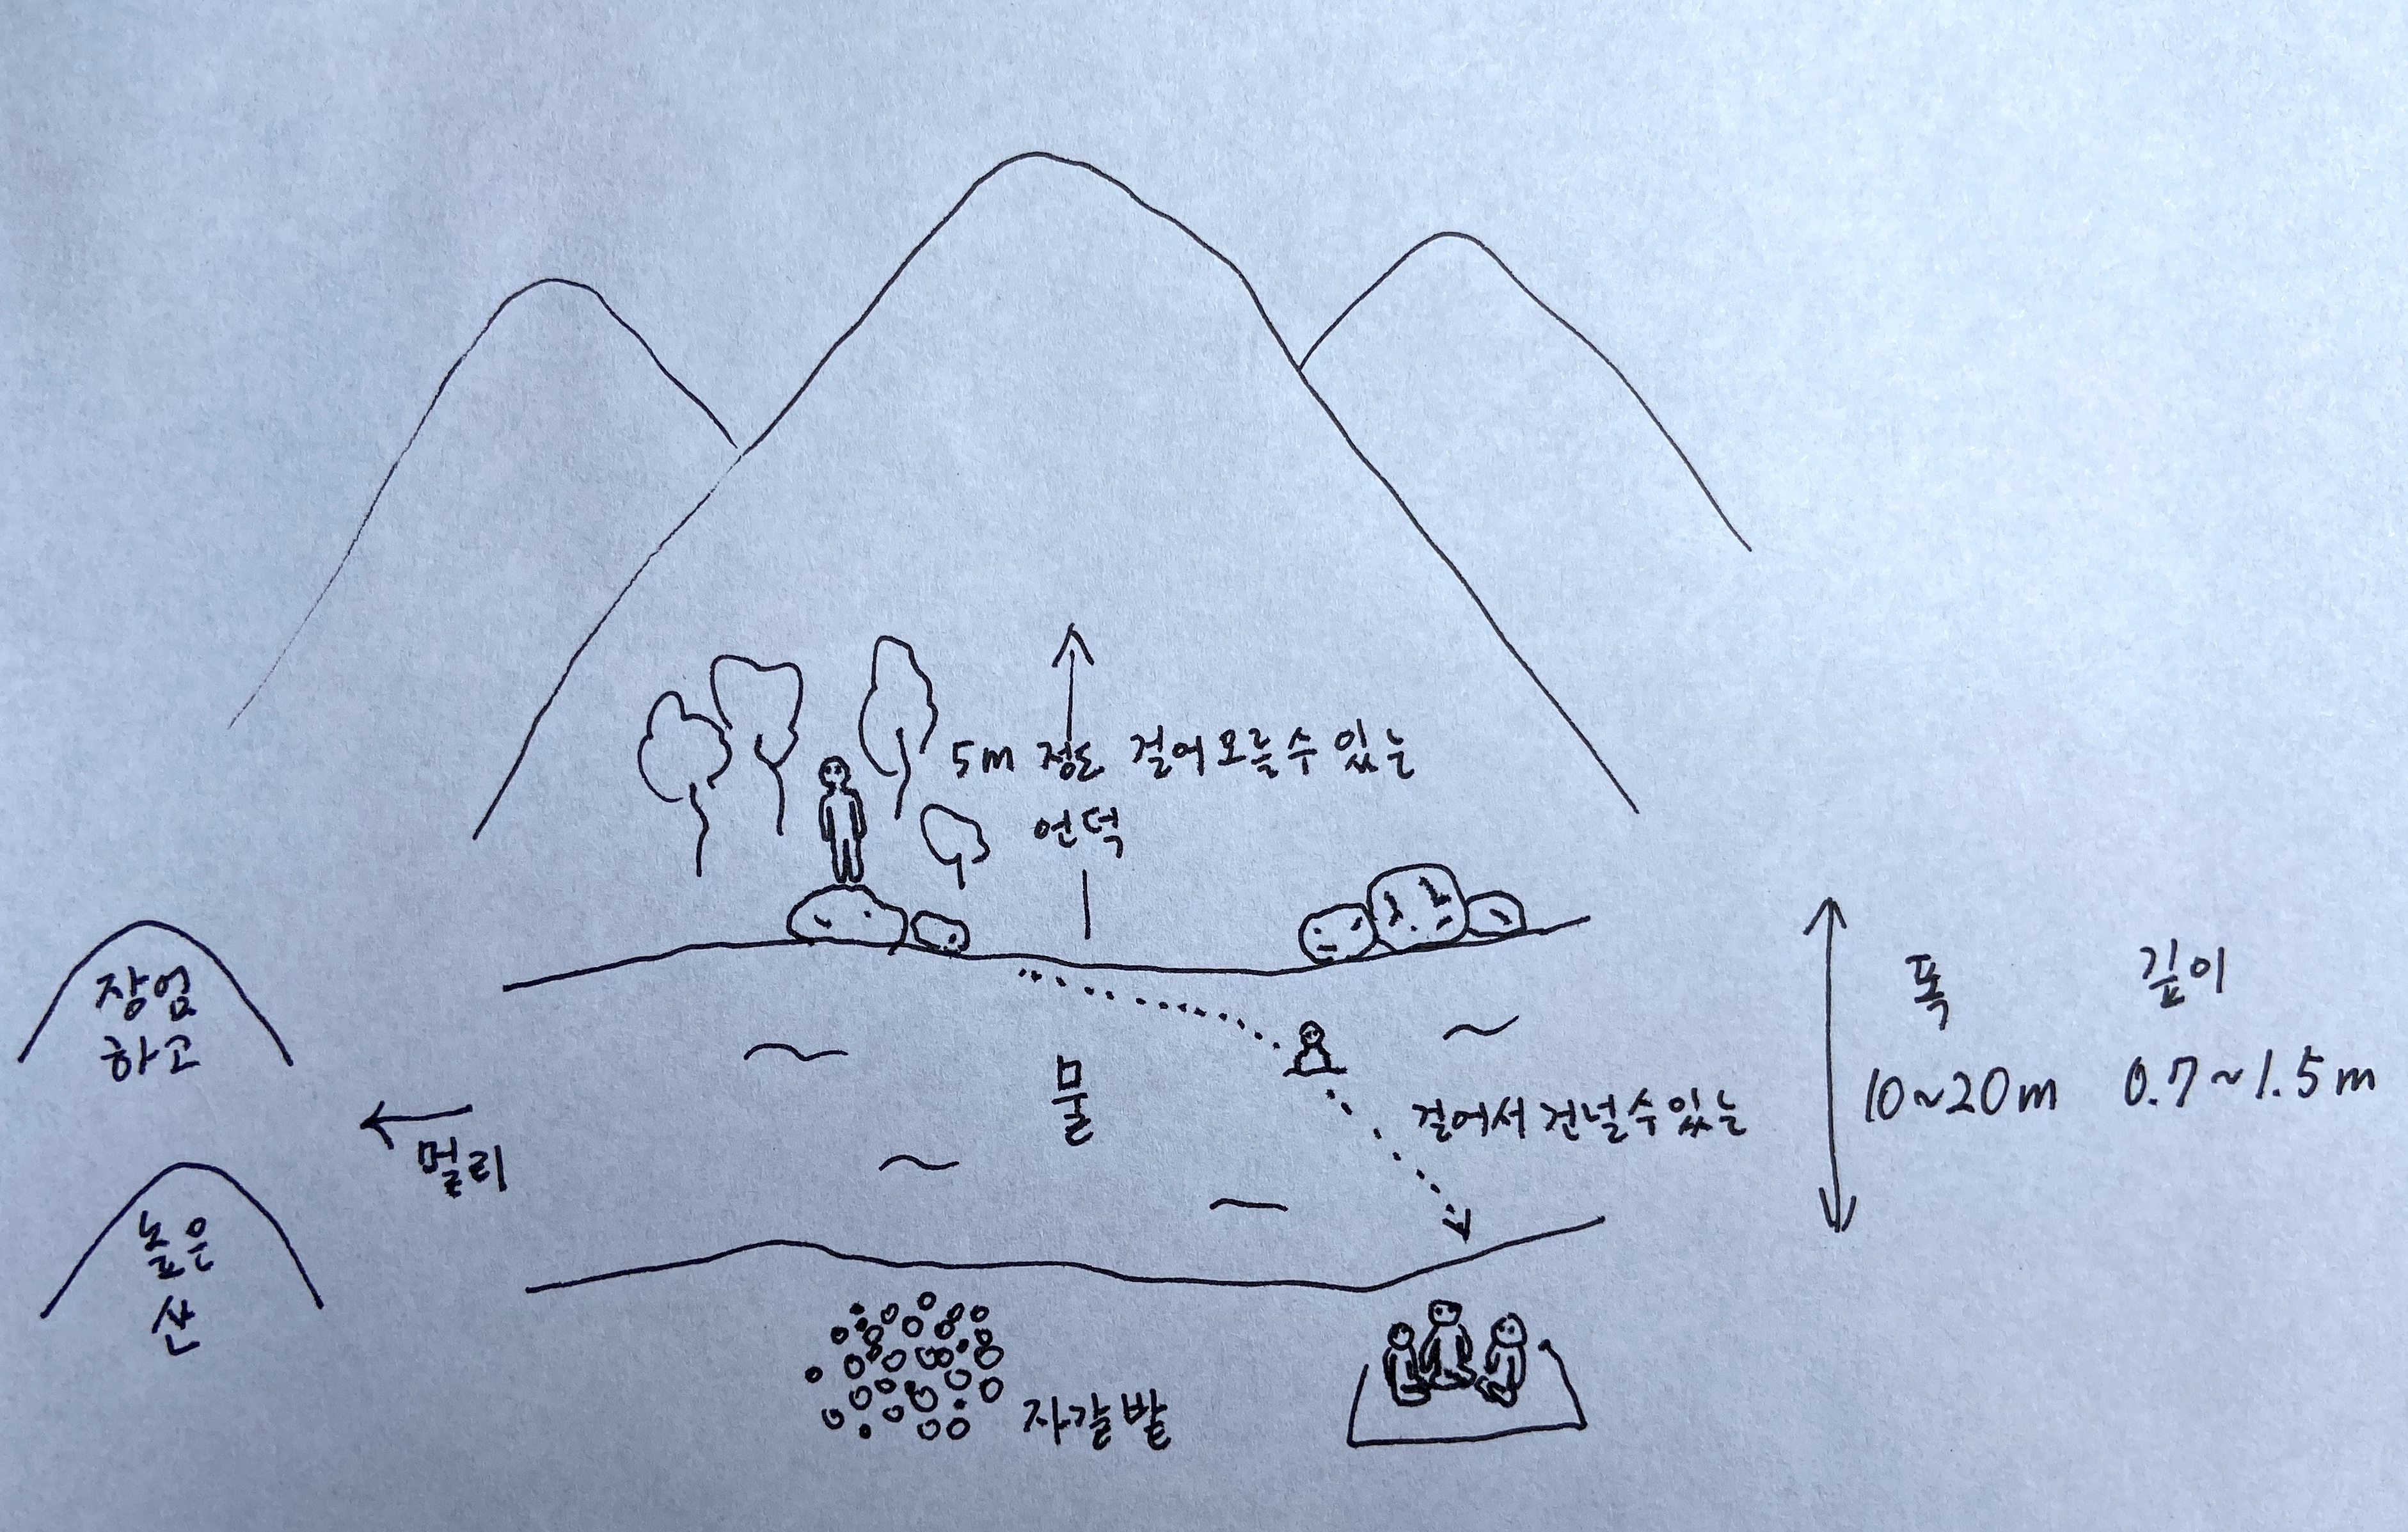 5m 정도 걸어오를수 있는
언덕
장엄
하고
멀리
높은
산
물
걸어서 건널수있는
폭 깊이
10~20m 0.7~1.5m
자갈밭